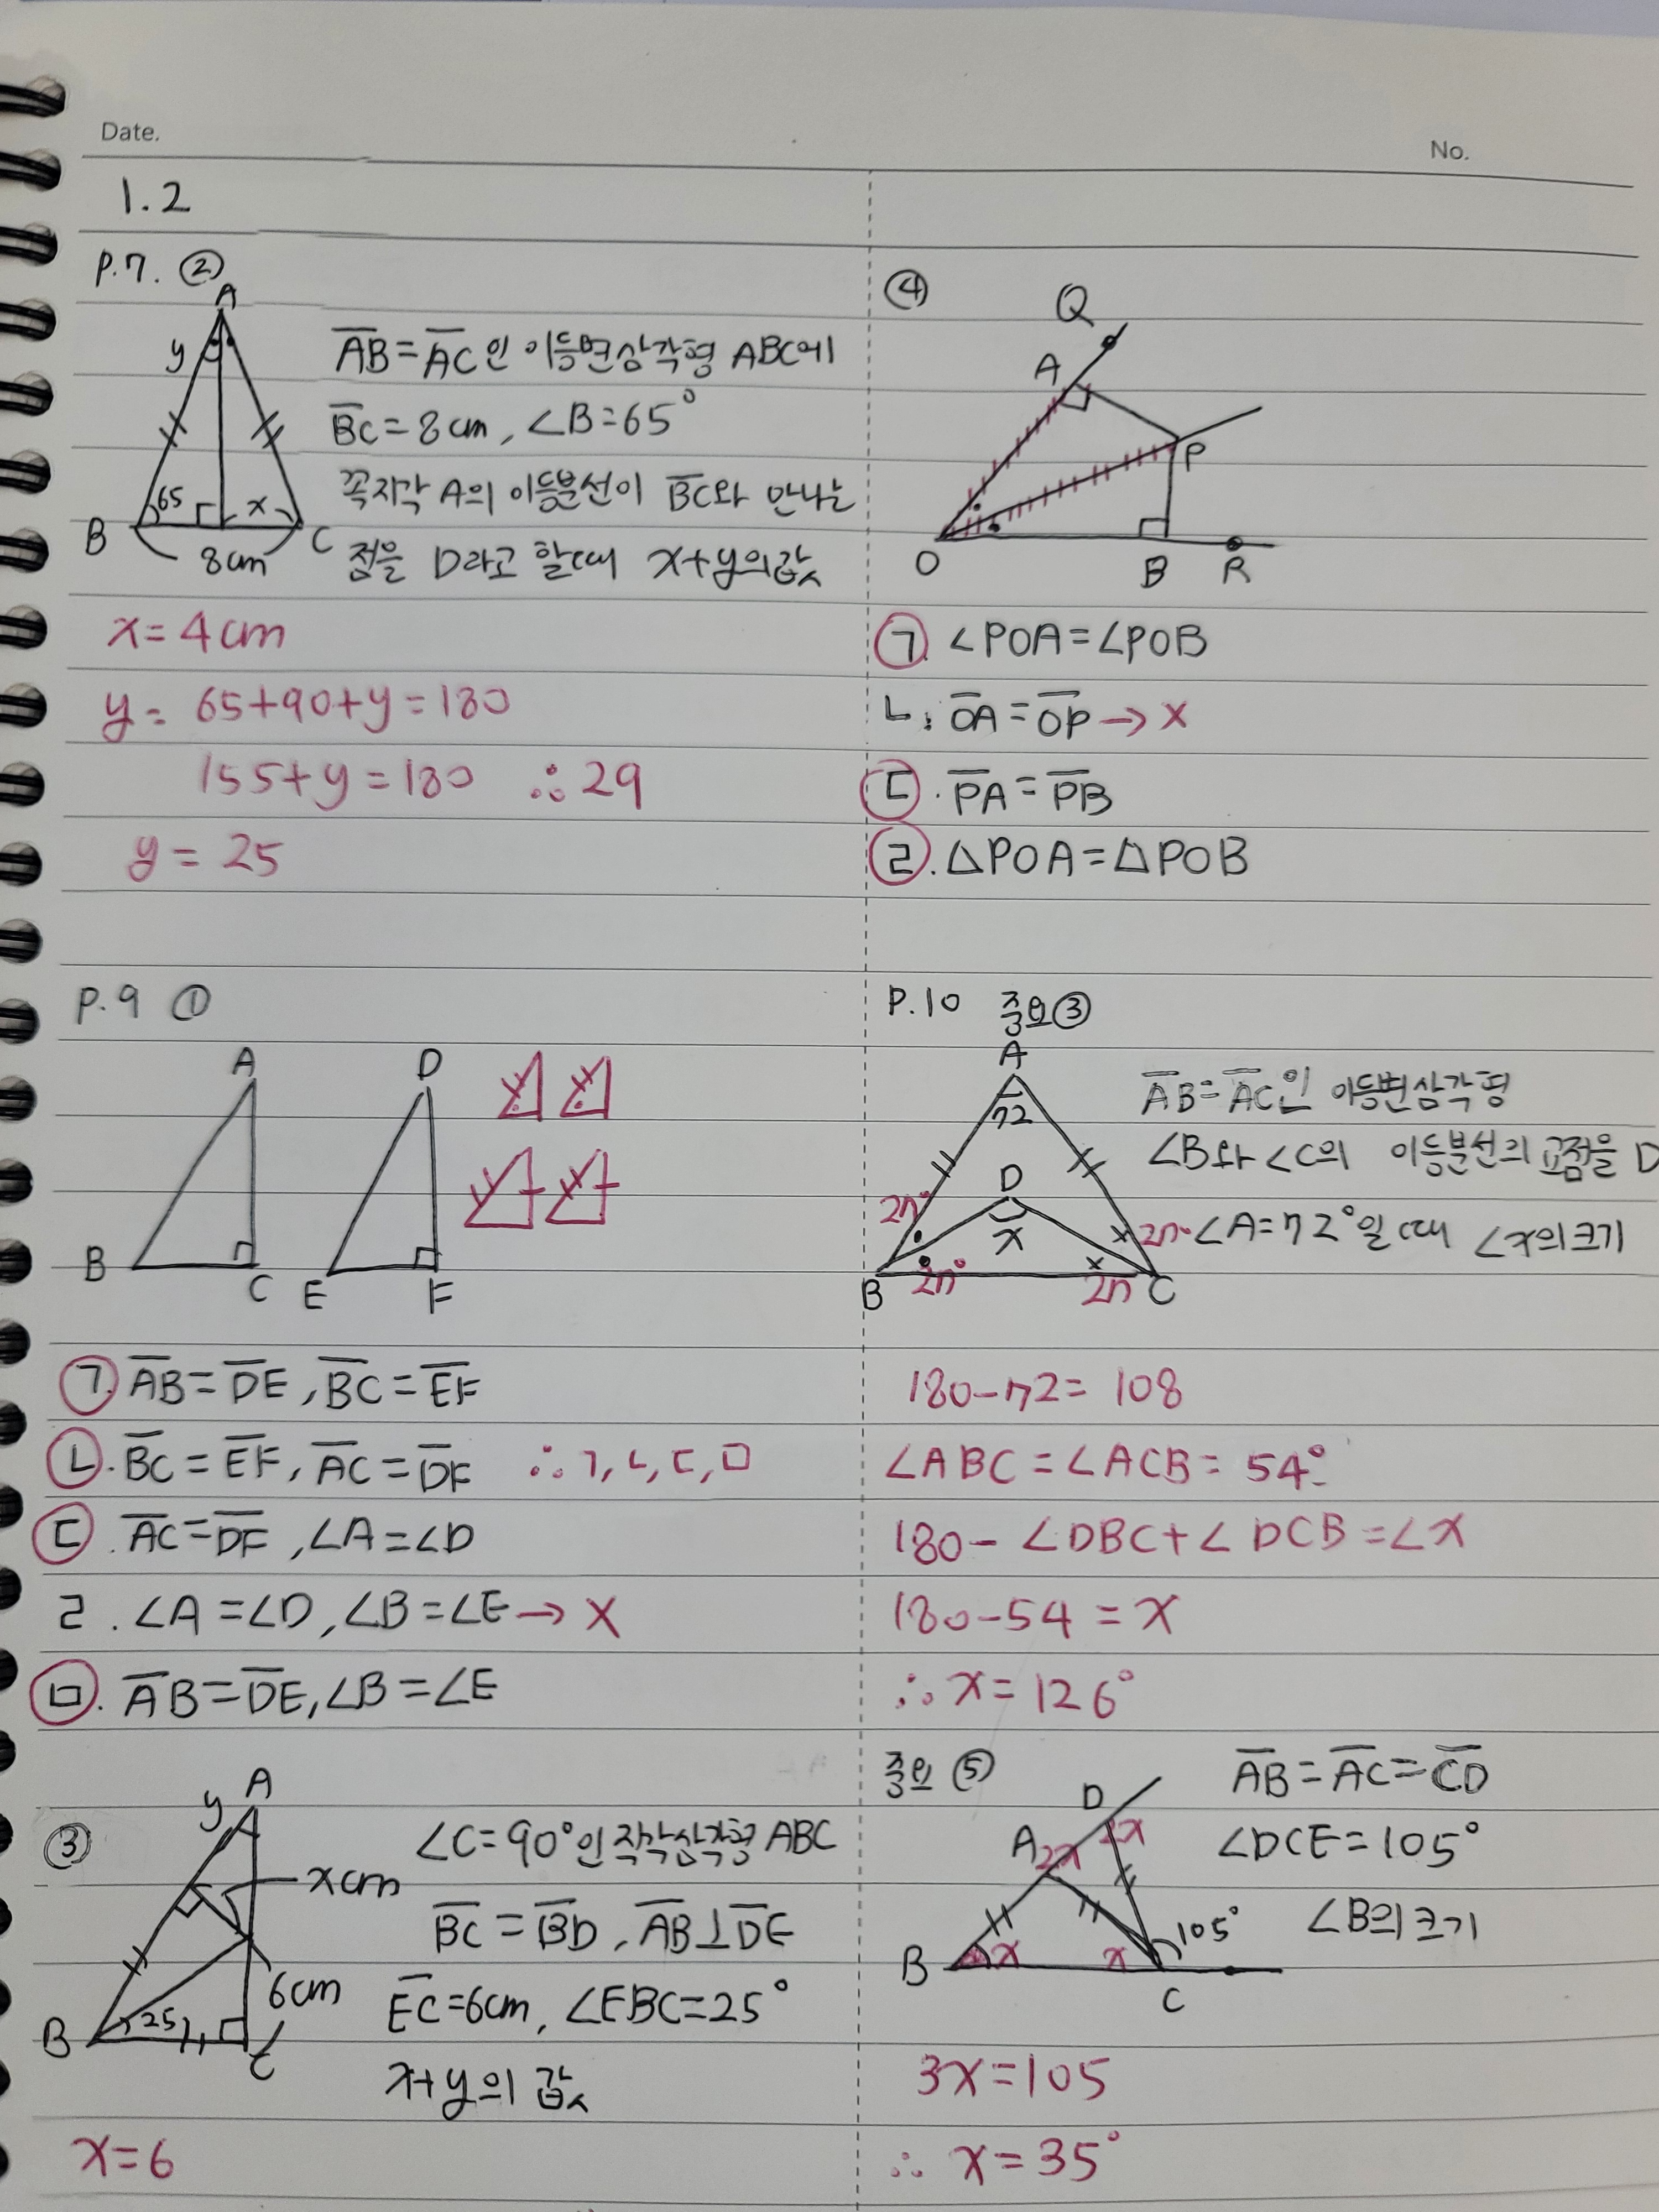 Date.
No.
1.2
P.7. ②
A
y
65
x
B
C
8cm
AB=AC인 이등변삼각형 ABC에
BC=8cm, ∠B=65°
꼭지각 A의 이등분선이 BC와 만나는
점을 D라고 할때 x+y의값
x=4cm
y= 65+90+y=180
155+y=180 ∴29
y=25
④
Q
A
P
O
B
R
ㄱ. ∠POA=∠POB
ㄴ. OA=OP→X
ㄷ. PA=PB
ㄹ. △POA=△POB
P.9 ①
A
D
B
C
E
F
ㄱ. AB=DE, BC=EF
ㄴ. BC=EF, AC=DF ∴ㄱ,ㄴ,ㄷ,ㅁ
ㄷ. AC=DF, ∠A=∠D
ㄹ. ∠A=∠D, ∠B=∠E→X
ㅁ. AB=DE, ∠B=∠E
P.10 중요③
A
72
D
x
27°
27°
27°
27
B
C
AB=AC인 이등변삼각형
∠B와 ∠C의 이등분선의 교점을 D
∠A=72°일때 ∠x의크기
180-72=108
∠ABC=∠ACB=54°
180-∠DBC+∠DCB=∠x
180-54=x
∴x=126°
③
y
A
xcm
6cm
25
B
C
∠C=90°인 직각삼각형 ABC
BC=BD, AB⊥DE
EC=6cm, ∠EBC=25°
x+y의 값
x=6
중요 ⑤
D
2x
A
2x
B
x
x
105°
C
AB=AC=CD
∠DCE=105°
∠B의 크기
3x=105
∴ x=35°